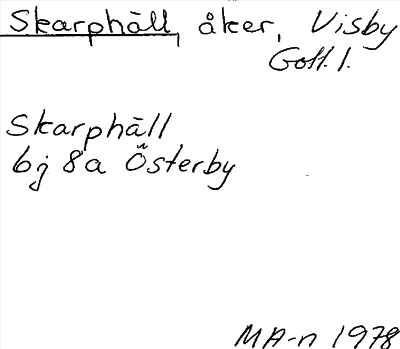 Skarphäll, åker, Visby
Gotl. l.
Skarphäll
bj 8a Österby
MA-n 1978